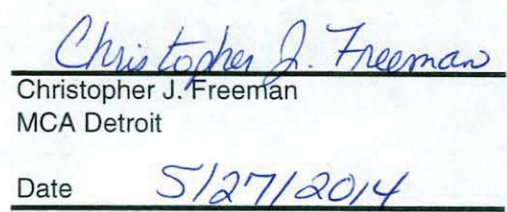 Christopher J. Freeman
Christopher J. Freeman
MCA Detroit
Date 5/27/2014